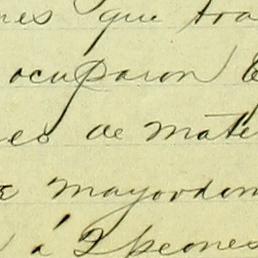 nes que tra
ocuparon
es de mate
mayordom
á 2 peones